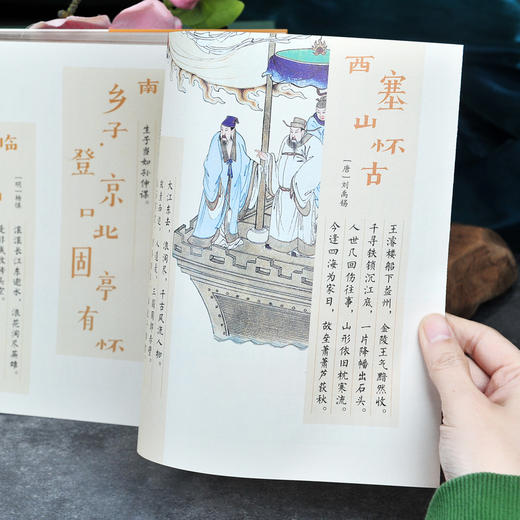 西塞山怀古
[唐]刘禹锡
王濬楼船下益州，金陵王气黯然收。
千寻铁锁沉江底，一片降幡出石头。
人世几回伤往事，山形依旧枕寒流。
今逢四海为家日，故垒萧萧芦荻秋。
大江东去，浪淘尽，千古风流人物。
故垒西边，人道是，三国周郎赤壁。
南乡子·登京口北固亭有怀
生子当如孙仲谋。
临
[明]杨慎
滚滚长江东逝水，浪花淘尽英雄。